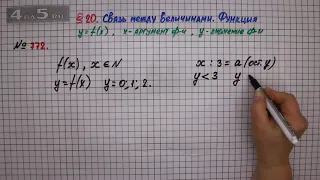 4 на 5 .ru
§ 20. Связь между величинами. Функция
y = f(x), x - аргумент ф-и, y - значение ф-и
№ 772.
f(x), x ∈ N
x : 3 = a (ост. y)
y = f(x) y = 0; 1; 2.
y < 3 y